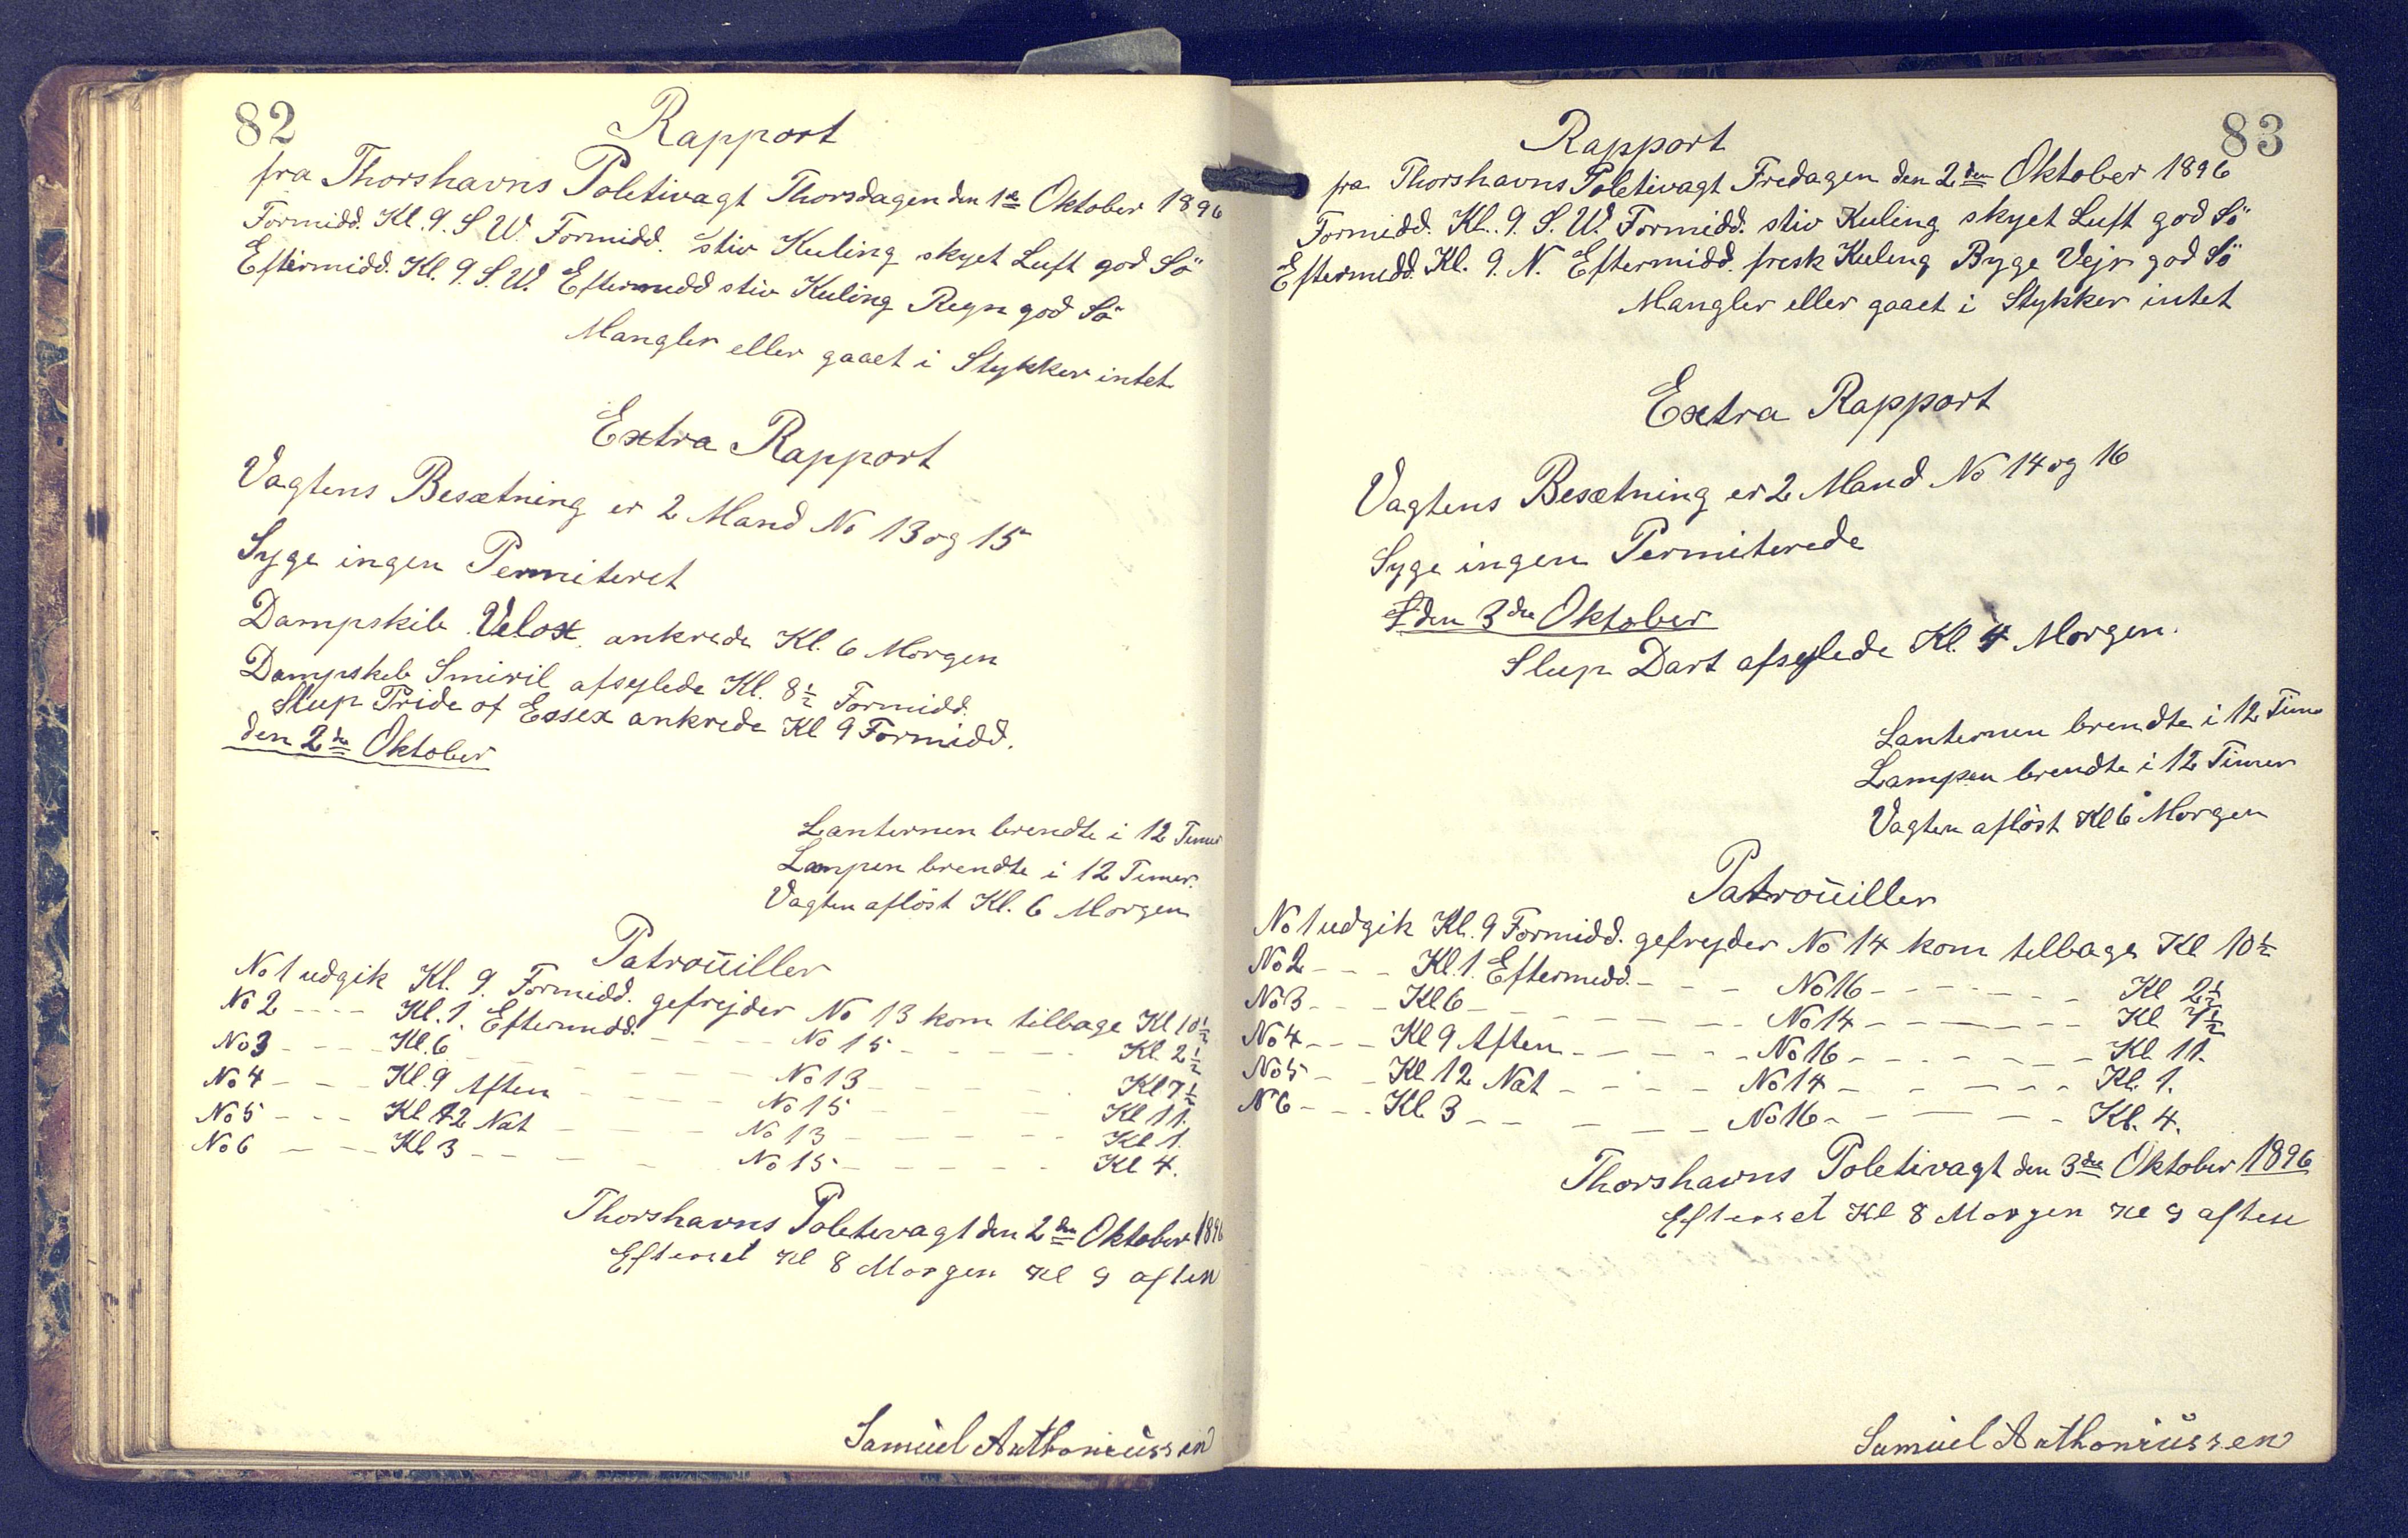 82
Rapport
fra Thorshavns Poletivagt Thorsdagen den 1ste Oktober 1896
Formidd. Kl. 9. S W. Formidd. stiv Kuling skyet Luft god Sö
Eftirmidd. Kl. 9. S. W. Eftermidd stiv Kuling Regn god Sö
Mangler eller gaaet i Stykker intet
Extra Rapport
Vagtens Besætning er 2 Mand No 13 og 15
Syge ingen Permiteret
Dampskib Velox ankrede Kl. 6 Morgen
Dampskib Smiril afseylede Kl. 8½ Formidd.
Slup Pride of Essex ankrede Kl 9 Formidd.
den 2de Oktober
Lanternen brendte i 12 Timer
Lampen brendte i 12 Timer.
Vagten aflöst Kl. 6 Morgen
Patroüiller
No 1 udgik Kl. 9. Formidd. gefrejder No 13 kom tilbage Kl 10½
No 2 - - - - Kl. 1. Eftermidd. - - - No 15 - - - - - Kl. 2½
No 3 - - - - Kl. 6 - - - - - No 13 - - - - - Kl 7½
No 4 - - - Kl. 9 Aften - - - - No 15 - - - - Kl 11.
No 5 - - - Kl 12 Nat - - - - No 13 - - - - - Kl 1.
No 6 - - - Kl 3 - - - - No 15 - - - - - Kl 4.
Thorshavns Poletivagt den 2den Oktober 1896
Efterset Kl 8 Morgen Kl 9 aften
Samüel Anthoniüssen
83
Rapport
fra Thorshavns Poletivagt Fredagen den 2den Oktober 1896
Formidd. Kl. 9. S. W. Formidd. stiv Kuling skyet Luft god Sö
Eftermidd. Kl. 9. N. Eftermidd. fresk Kuling Byge Vejr god Sö
Mangler eller gaaet i Stykker intet
Extra Rapport
Vagtens Besætning er 2 Mand No 14 og 16
Syge ingen Permiterede
den 3die Oktober
Slup Dart afseylede Kl. 4 Morgen.
Lanternen brendte i 12 Time
Lampen brendte i 12 Timer
Vagten aflöst Kl 6 Morgen
Patroüiller
No 1 udgik Kl. 9 Formidd. gefrejder No 14 kom telbage Kl 10½
No 2 - - - Kl. 1. Eftermidd. - - - No 16 - - - - - - Kl 2½
No 3 - - - Kl 6 - - - - - - No 14 - - - - - - Kl 7½
No 4 - - - Kl 9 Aften - - - - - No 16 - - - - - - Kl. 11.
No 5 - - Kl. 12 Nat - - - - No 14 - - - - - Kl. 1.
No 6 - - - Kl. 3 - - - - - No 16 - - - - - Kl. 4.
Thorshavns Poletivagt den 3die Oktober 1896
Efterset Kl 8 Morgen Kl 9 aften
Samüel Anthoniüssen